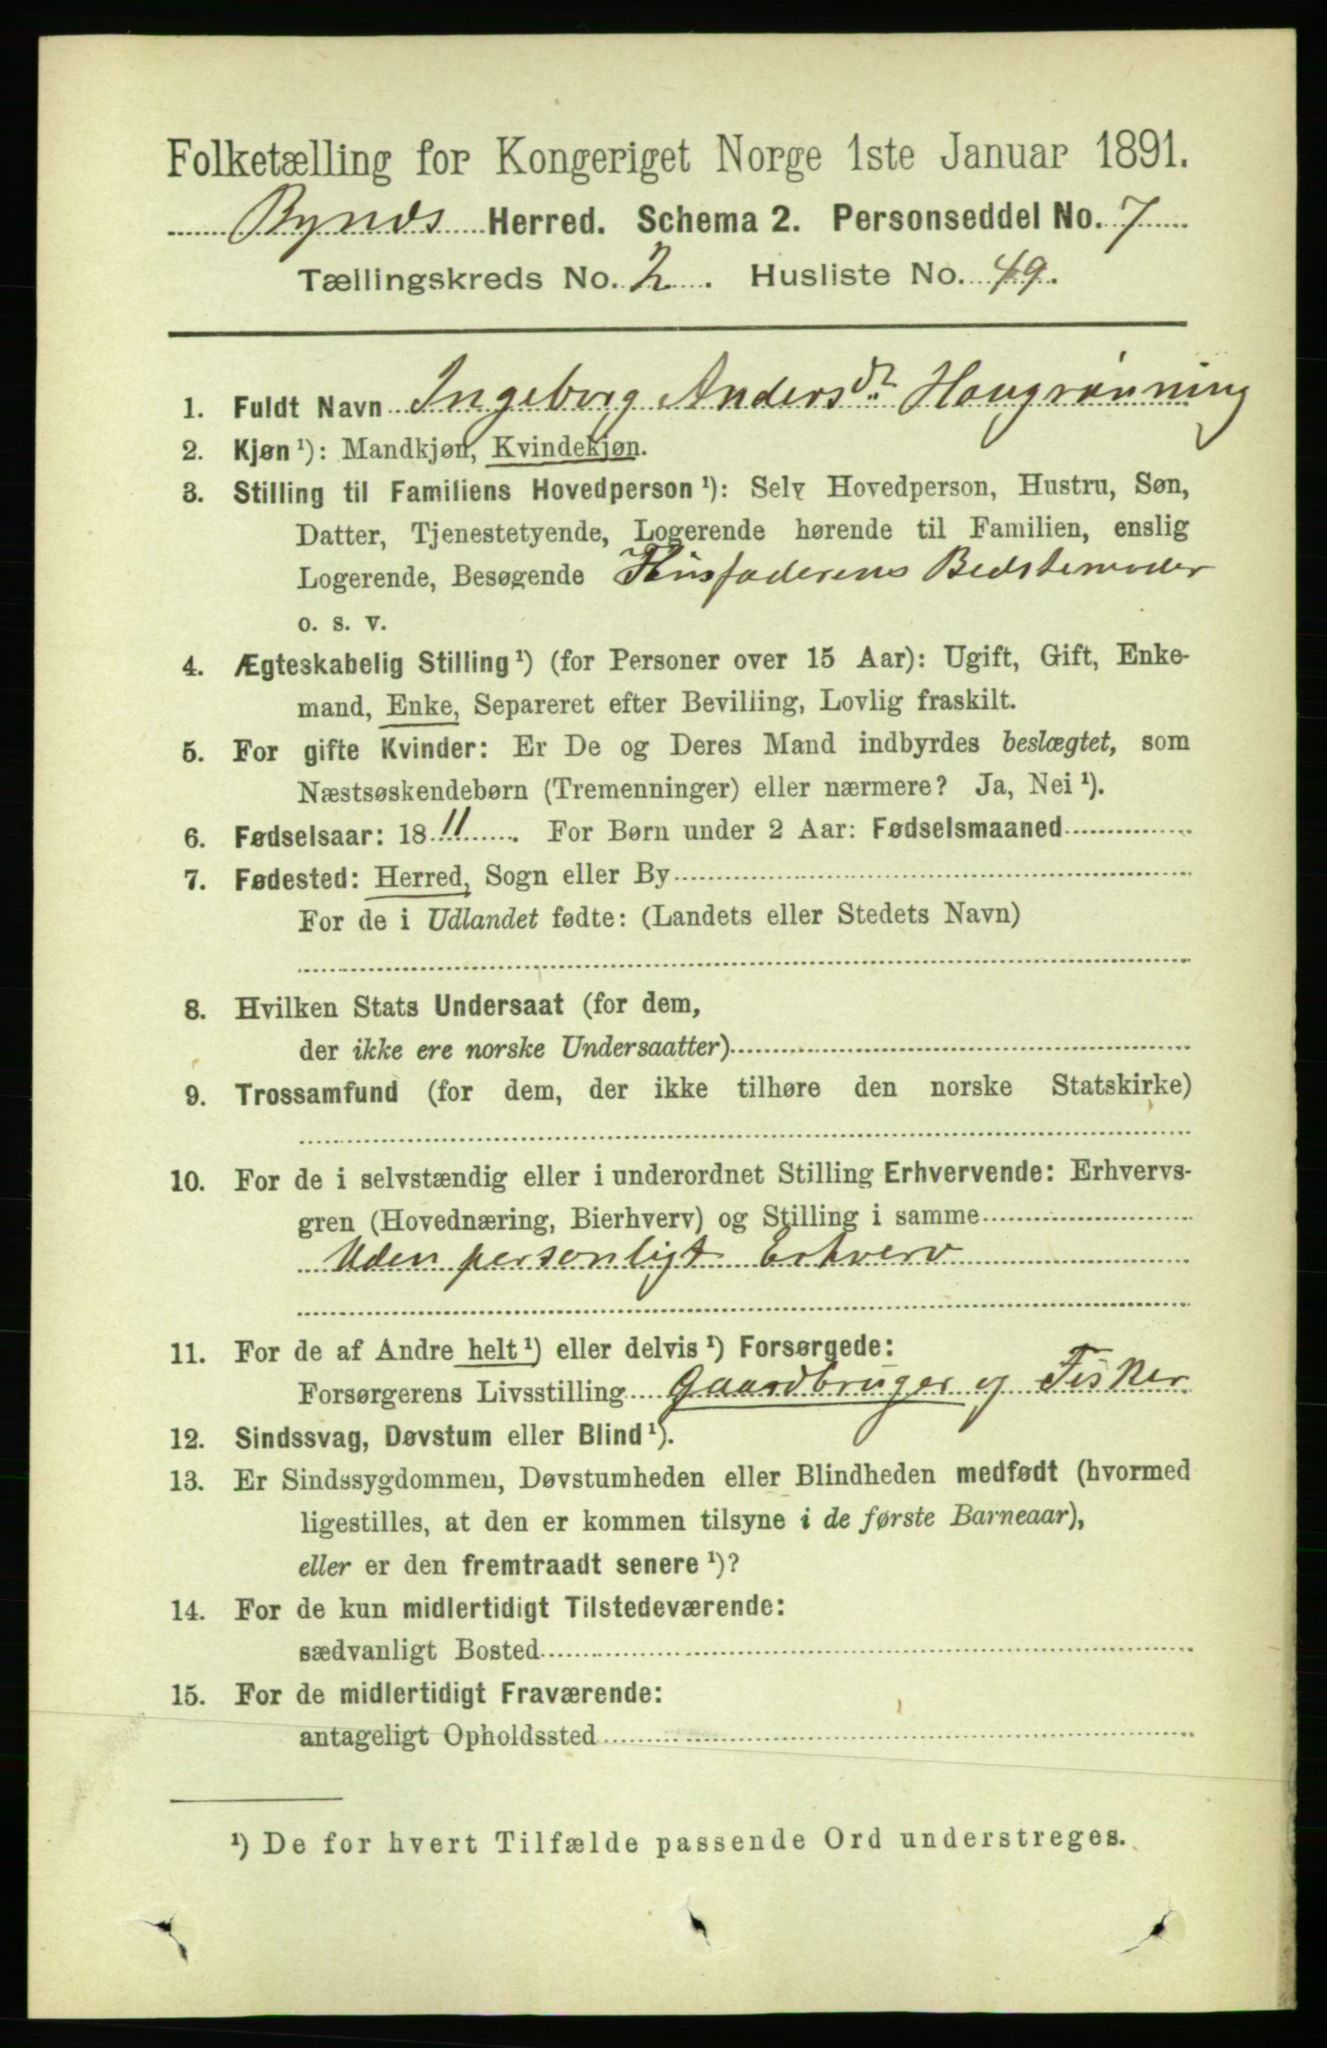 Folketælling for Kongeriget Norge 1ste Januar 1891.
Bynes Herred. Schema 2. Personseddel No. 7
Tællingskreds No. 2. Husliste No. 49.
1. Fuldt Navn Ingeborg Andersdr. Haugrønning
2. Kjøn ¹): Mandkjøn, Kvindekjøn.
3. Stilling til Familiens Hovedperson ¹): Selv Hovedperson, Hustru, Søn,
Datter, Tjenestetyende, Logerende hørende til Familien, enslig
Logerende, Besøgende Husfaderens Bedstemoder
o. s. v.
4. Ægteskabelig Stilling ¹) (for Personer over 15 Aar): Ugift, Gift, Enke-
mand, Enke, Separeret efter Bevilling, Lovlig fraskilt.
5. For gifte Kvinder: Er De og Deres Mand indbyrdes beslægtet, som
Næstsøskendebørn (Tremenninger) eller nærmere? Ja, Nei ¹).
6. Fødselsaar: 1811. For Børn under 2 Aar: Fødselsmaaned
7. Fødested: Herred, Sogn eller By
For de i Udlandet fødte: (Landets eller Stedets Navn)
8. Hvilken Stats Undersaat (for dem,
der ikke ere norske Undersaatter)
9. Trossamfund (for dem, der ikke tilhøre den norske Statskirke)
10. For de i selvstændig eller i underordnet Stilling Erhvervende: Erhvervs-
gren (Hovednæring, Bierhverv) og Stilling i samme
Uden personligt Erhverv
11. For de af Andre helt ¹) eller delvis ¹) Forsørgede:
Forsørgerens Livsstilling Gaardbruger og Fisker
12. Sindssvag, Døvstum eller Blind ¹).
13. Er Sindssygdommen, Døvstumheden eller Blindheden medfødt (hvormed
ligestilles, at den er kommen tilsyne i de første Barneaar),
eller er den fremtraadt senere ¹)?
14. For de kun midlertidigt Tilstedeværende:
sædvanligt Bosted
15. For de midlertidigt Fraværende:
antageligt Opholdssted
¹) De for hvert Tilfælde passende Ord understreges.